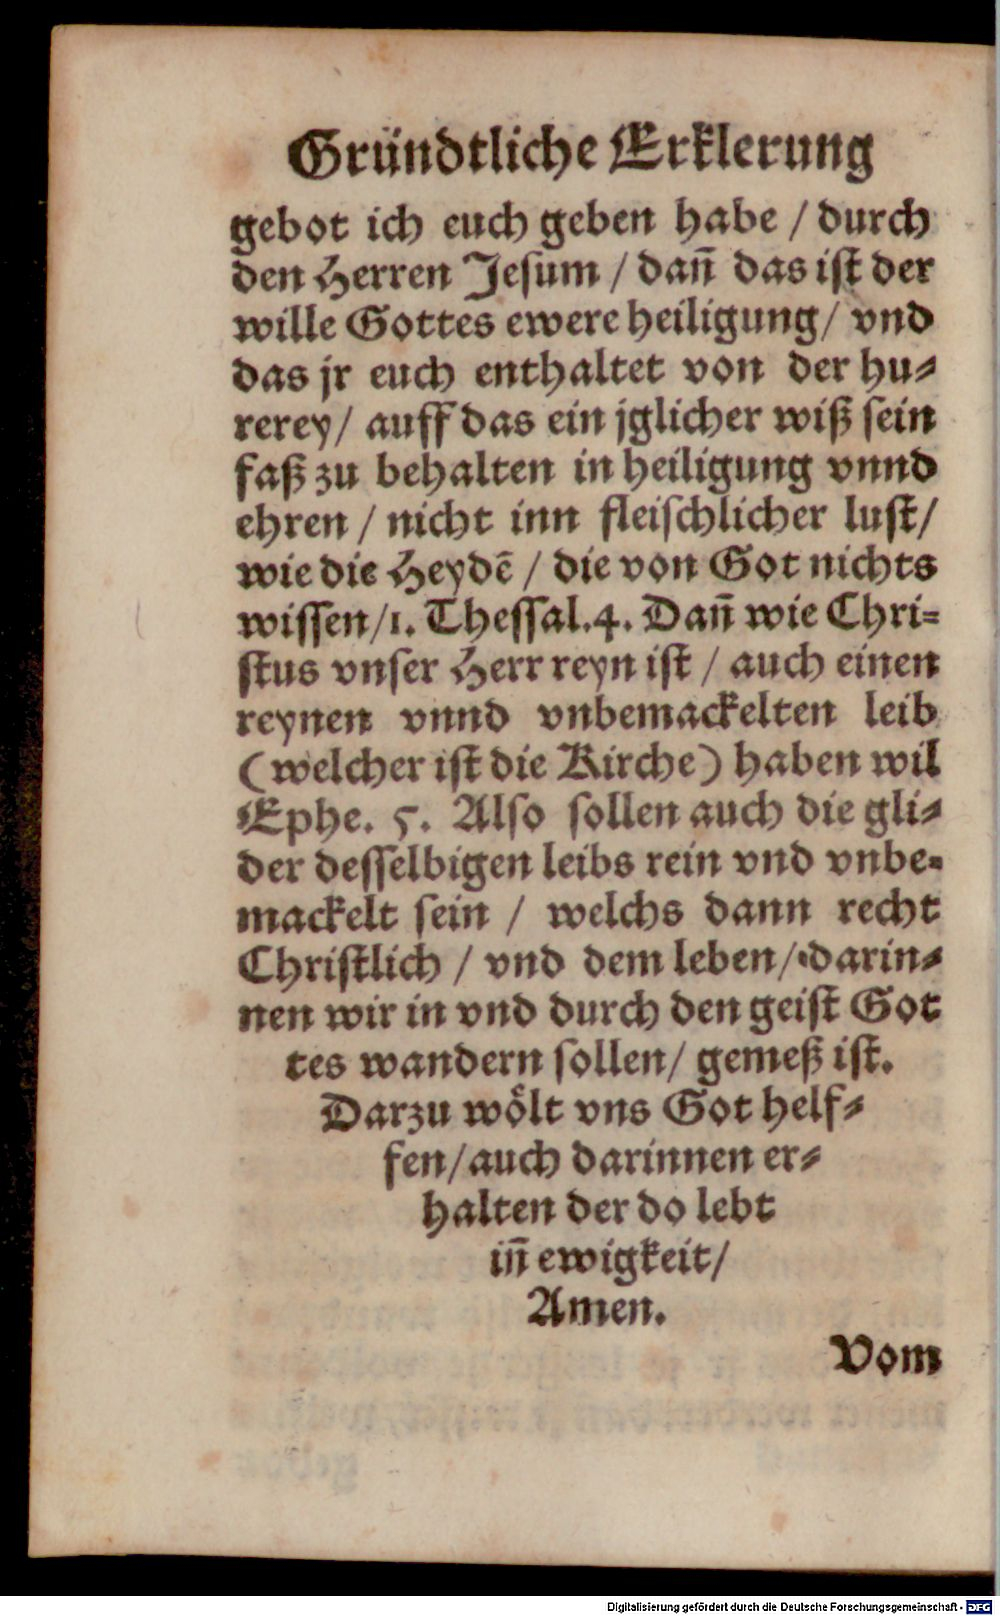 Gründtliche Erklerung
gebot ich euch geben habe / durch
den Herren Jesum / dañ das ist der
wille Gottes ewere heiligung / vnd
das jr euch enthaltet von der hu⸗
rerey / auff das ein jglicher wiß sein
faß zu behalten in heiligung vnnd
ehren / nicht inn fleischlicher lust /
wie die Heydē / die von Got nichts
wissen / 1. Thessal. 4. Dañ wie Chri⸗
stus vnser Herr reyn ist / auch einen
reynen vnnd vnbemackelten leib
(welcher ist die Kirche) haben wil
Ephe. 5. Also sollen auch die gli⸗
der desselbigen leibs rein vnd vnbe⸗
mackelt sein / welchs dann recht
Christlich / vnd dem leben / darin⸗
nen wir in vnd durch den geist Got
tes wandern sollen / gemeß ist.
Darzu woͤlt vns Got helf⸗
fen / auch darinnen er⸗
halten der do lebt
iñ ewigkeit /
Amen.
Vom
Digitalisierung gefördert durch die Deutsche Forschungsgemeinschaft - DFG